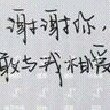 谢谢你，
敢与我相爱